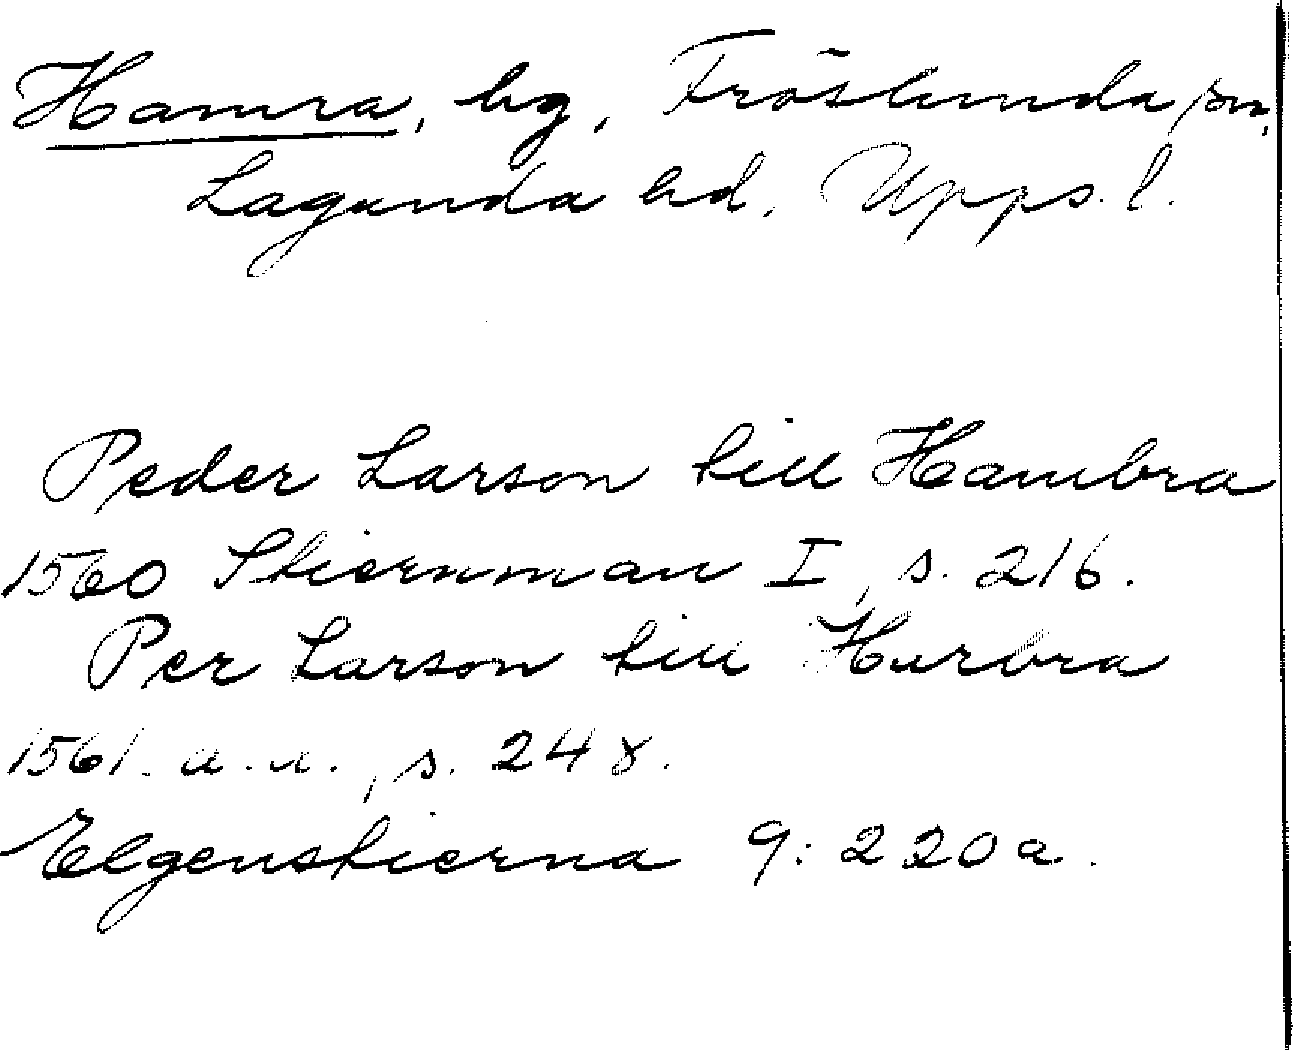 Hamra, hg, Fröslunda sn,
Lagunda hd, Upps. l.
Peder Larson till Hambra
1560 Stiernman I, s. 216.
Per Larson till Hurbra
1561. a. a., s. 248.
Elgenstierna 9:220a.